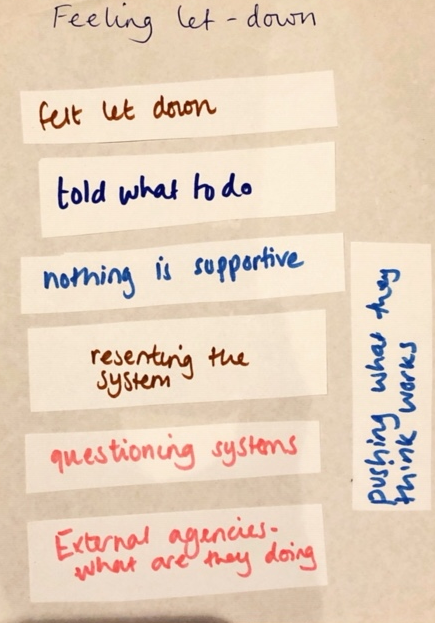 Feeling let-down
felt let down
told what to do
nothing is supportive
resenting the
system
questioning systems
External agencies-
what are they doing
pushing what they
think works